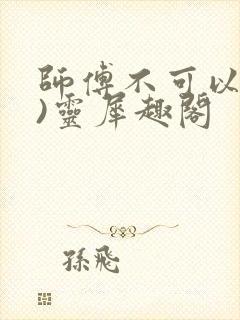 師傅不可以
)靈犀趣閣
孫飛